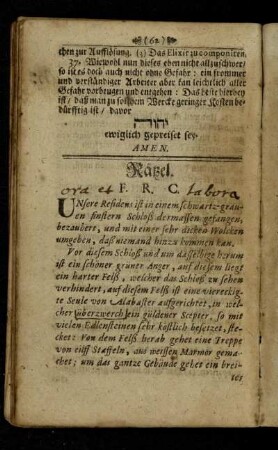 (62)
chen zur Aufflösung. (3) Das Elixir zu componiren.
37. Wiewohl nun dieses eben nicht allzuschwer/
so ist es doch auch nicht ohne Gefahr: ein frommer
und verständiger Arbeiter aber kan leichtlich aller
Gefahr vorbeugen und entgehen: Das beste hierbey
ist/ daß man zu solchem Wercke geringer Kosten be-
dürfftig ist/ davor
יהוה
ewiglich gepreiset sey.
AMEN.
Rätzel.
ora et F. R. C. labora
Unsere Residenz ist in einem schwartz-grau-
en finstern Schloß dermassen gefangen,
bezaubert, und mit einer sehr dicken Wolcken
umgeben, daß niemand hinzu kommen kan.
Vor diesem Schloß und um dasselbige herum
ist ein schöner grüner Anger, auf diesem liegt
ein harter Felß, welcher das Schloß zu sehen
verhindert, auf diesem Felß ist eine viereckig-
te Seule von Alabaster aufgerichtet, in wel-
cher überzwerch ein güldener Scepter, so mit
vielen Edlensteinen sehr köstlich besetzet, ste-
cket: Von dem Felß herab gehet eine Treppe
von eilff Staffeln, aus weissen Marmor gema-
chet; um das gantze Gebände gehet ein brei-
tes